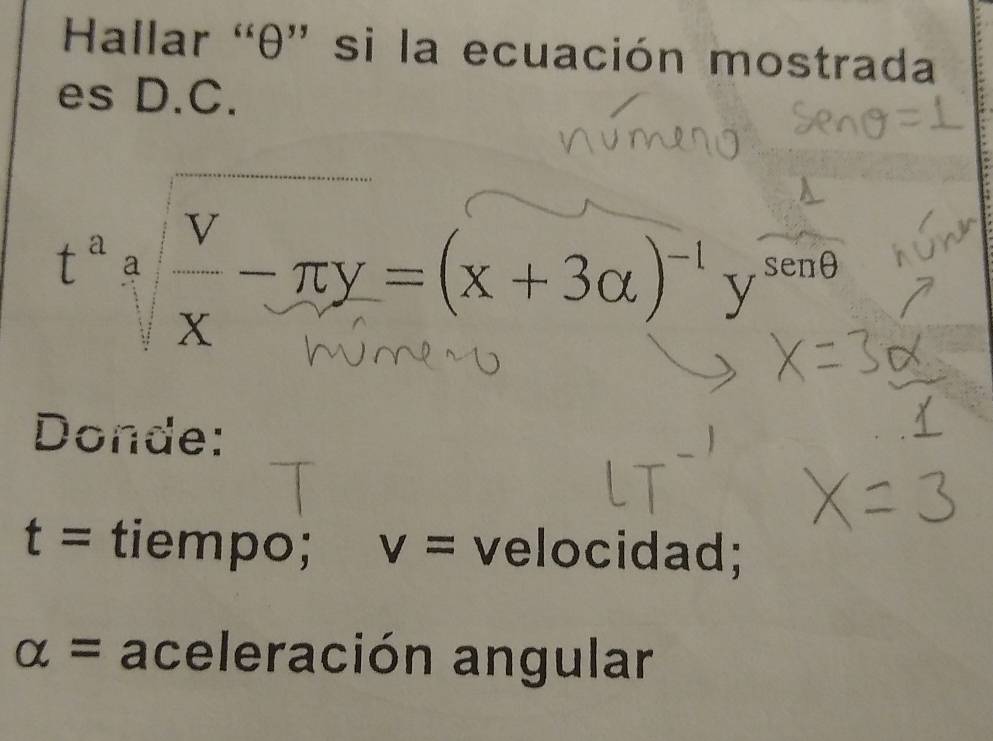 Hallar “θ” si la ecuación mostrada
es D.C.
número senθ=1
1
t^a a√(v/x - πy) = (x + 3α)^-1 y^senθ
número
x=3α
1
Donde:
T LT^-1 x=3
t = tiempo; v = velocidad;
α = aceleración angular